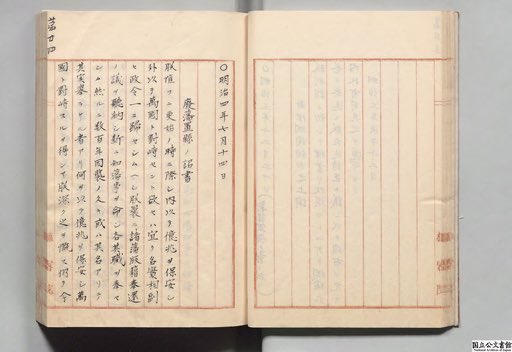 〇明治四年七月十四日
廢藩置縣ノ詔書
朕惟フニ更始ノ時ニ際シ内以テ億兆ヲ保安シ
外以テ萬國ト對峙セント欲セハ宜ク名實相副
ヒ政令一ニ歸セシムヘシ朕曩ニ諸藩版籍奉還
ノ議ヲ聽納シ新ニ知藩事ヲ命シ各其職ヲ奉セ
シム然ルニ数百年因襲ノ久キ或ハ其名アリテ
其実擧ラサル者アリ何ヲ以テ億兆ヲ保安シ萬
國ト對峙スルヲ得ンヤ朕深ク之ヲ慨ス仍テ今
第廿四
国立公文書館
National Archives of Japan